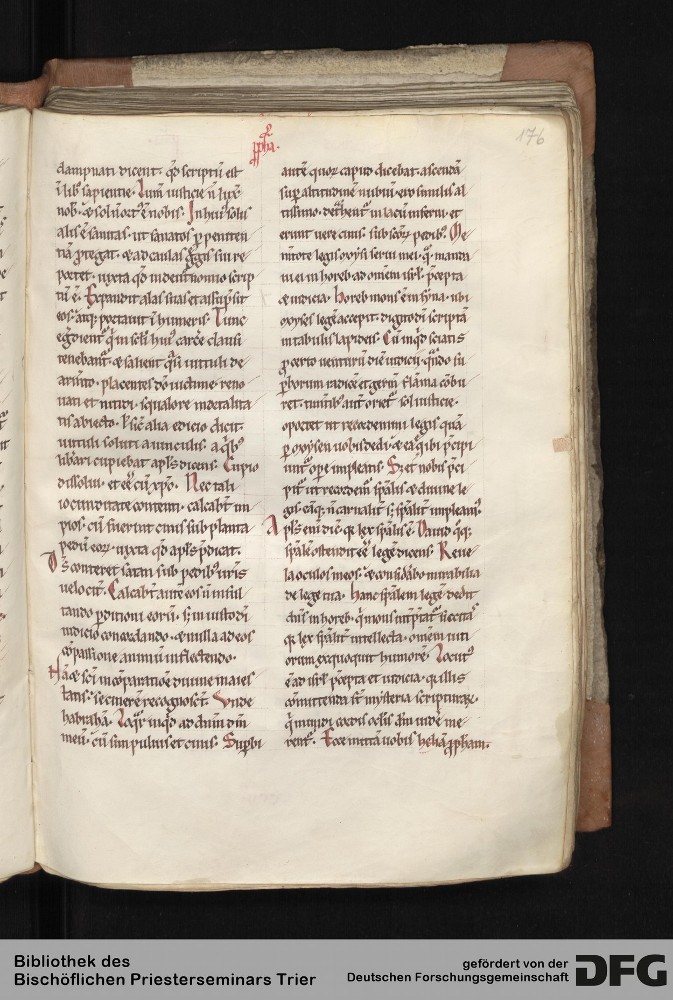 ꝓpha.
176
dampnati dicent. qd scriptū est
ī libº sapientie. Lum iusticie ñ luxit
nob. & sol ñ ort' ē nobis. In hui' solis
alis ē sanitas. ut sanatos p peniten
tiā ꝓtegat. & ad caulas gregis sui re
portet. iuxta qd in deutronomio scrip
tū ē. Expandit alas suas et assūpsit
eos. atq; portauit ī humeris. Tunc
egredient' qi in scłi hui' carcere clausi
tenebant'. & salient qsi uituli de
armto. placentes dō iuchme. reno
uati et nitidi. squalore mortalita
tis abiecto. Łsic alia edicio dicit.
uituli soluti a uinculis. a qb'
liberari cupiebat apłs dicens. Cupio
dissolui. et ee cū xpo. Nec tali
iocunditate contenti. calcabt' im
pios. cū fuerint cinis sub planta
pedū eoꝝ. iuxta qd apłs p̄dicat.
Ds conteret satan sub pedib' uris
uelocit'. Calcabt' aute eos ñ insul
tando perditioni eoꝝ. s; in iusto di
iudicio concordando. & nulla ad eos
cōpassione animū inflectendo.
Nā & sci in cōparatione diuine maies
tatis. se cinerē recognoscūt. Unde
habrahā. Loqr inqd ad dnm dm
meū. cū sim puluis et cinis. Superbi
autē quoꝝ capud dicebat. ascendā
super altitudinē nubiū. ero similis al
tissimo. detrhent' in lacū inferni. et
erunt uere cinis. sub scōꝝ pedib'. Me
mtote legis moysi serui mei. qa manda
ui ei in horeb ad omem isrł. p̄cepta
& iudicia. Horeb mons ē in syna. ubi
moyses legē accepit. digito di scriptā
in tabulis lapideis. Cū inqd sciatis
ꝓ certo uenturū diē iudicii. qndo su
perborum radicē et germ̄ flāma cōbu
ret. timtib' aut oriet' sol iusticie.
oportet ut recordemini legis quā
per moysen uobis dedi. & ea q̄ ibi p̄cipi
unt' ope impleatis. Si et nobis p̄ci
pit'. ut recordem' sp̄alis & diuine le
gis. eāq; ñ carnalit' s; sp̄alit' impleam'.
Apłs eni dic. qa lex sp̄alis ē. Dauid q;
sp̄ale ostendit ee legē dicens. Reue
la oculos meos. & considabo mirabilia
de lege tua. Hanc sp̄alem legē dedit
dn̄s in horeb. q̄ mons int̄ptat' siccitas.
qa lex sp̄alit' intellecta. omem uiti
orum exquoquit humorē. Locut'
ē ad isrł. p̄cepta et iudicia. qa illis
cōmittenda st mysteria scripturaꝝ.
qi mundi cordis oclis dm uide me
rent'. Ecce mittā uobis heliā ꝓpham.
Bibliothek des
Bischöflichen Priesterseminars Trier
gefördert von der
Deutschen Forschungsgemeinschaft
DFG